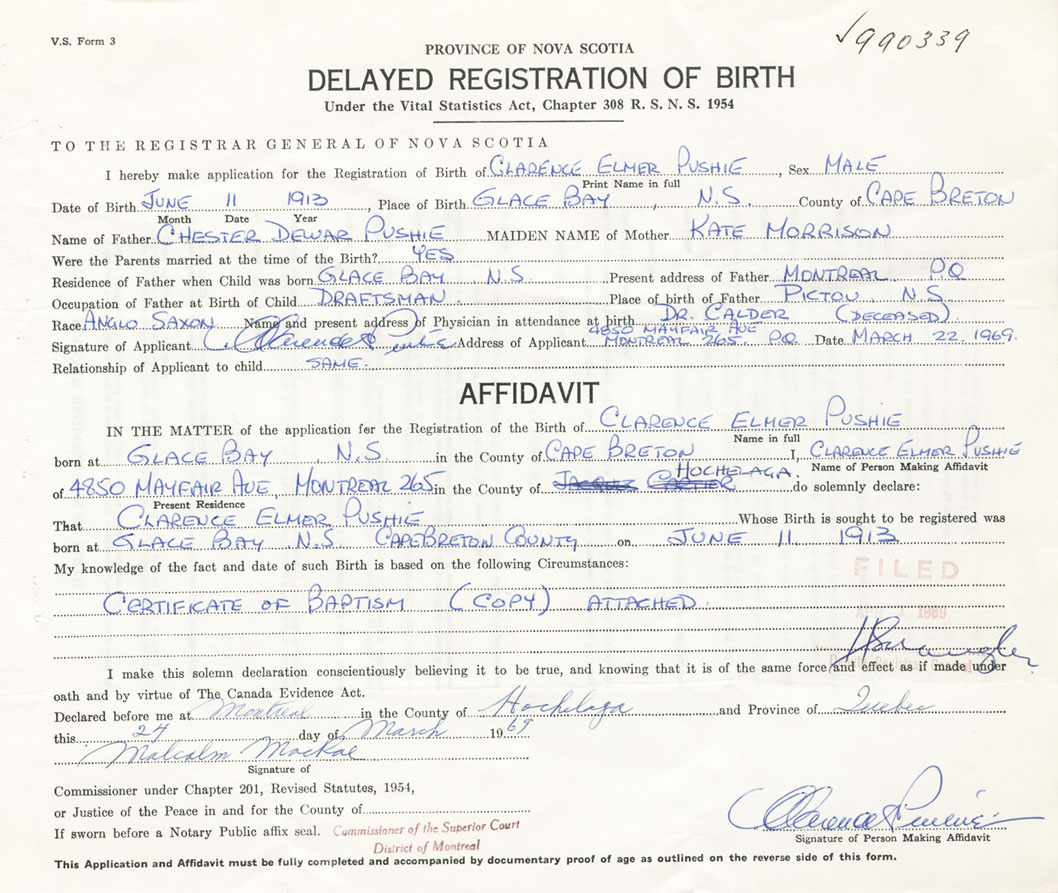 V.S. Form 3
√990339
PROVINCE OF NOVA SCOTIA
DELAYED REGISTRATION OF BIRTH
Under the Vital Statistics Act, Chapter 308 R. S. N. S. 1954
TO THE REGISTRAR GENERAL OF NOVA SCOTIA
I hereby make application for the Registration of Birth of CLARENCE ELMER PUSHIE, Sex MALE
Print Name in full
Date of Birth JUNE 11 1913, Place of Birth GLACE BAY, N.S. County of CAPE BRETON
Month Date Year
Name of Father CHESTER DEWAR PUSHIE MAIDEN NAME of Mother KATE MORRISON
Were the Parents married at the time of the Birth? YES
Residence of Father when Child was born GLACE BAY N.S. Present address of Father MONTREAL PQ
Occupation of Father at Birth of Child DRAFTSMAN. Place of birth of Father PICTON N.S.
Race ANGLO SAXON Name and present address of Physician in attendance at birth DR. CALDER (DECEASED).
4850 MAYFAIR AVE
Signature of Applicant Clarence Address of Applicant MONTREAL 265 PQ Date MARCH 22, 1969.
Relationship of Applicant to child SAME.
AFFIDAVIT
IN THE MATTER of the application for the Registration of the Birth of CLARENCE ELMER PUSHIE
Name in full
born at GLACE BAY, N.S. in the County of CAPE BRETON I, CLARENCE ELMER PUSHIE
HOCHELAGA. Name of Person Making Affidavit
of 4850 MAYFAIR AVE, MONTREAL 265 in the County of JACQUES CARTIER do solemnly declare:
Present Residence
That CLARENCE ELMER PUSHIE Whose Birth is sought to be registered was
born at GLACE BAY N.S. CAPE BRETON COUNTY on JUNE 11 1913
My knowledge of the fact and date of such Birth is based on the following Circumstances:
FILED
CERTIFICATE OF BAPTISM (COPY) ATTACHED.
1969
I make this solemn declaration conscientiously believing it to be true, and knowing that it is of the same force and effect as if made under
oath and by virtue of The Canada Evidence Act.
Declared before me at Montreal in the County of Hochelaga and Province of Quebec
this 24 day of March 1969
Malcolm MacRae
Signature of
Commissioner under Chapter 201, Revised Statutes, 1954,
or Justice of the Peace in and for the County of
If sworn before a Notary Public affix seal. Commissioner of the Superior Court
District of Montreal
Clarence Pushie
Signature of Person Making Affidavit
This Application and Affidavit must be fully completed and accompanied by documentary proof of age as outlined on the reverse side of this form.